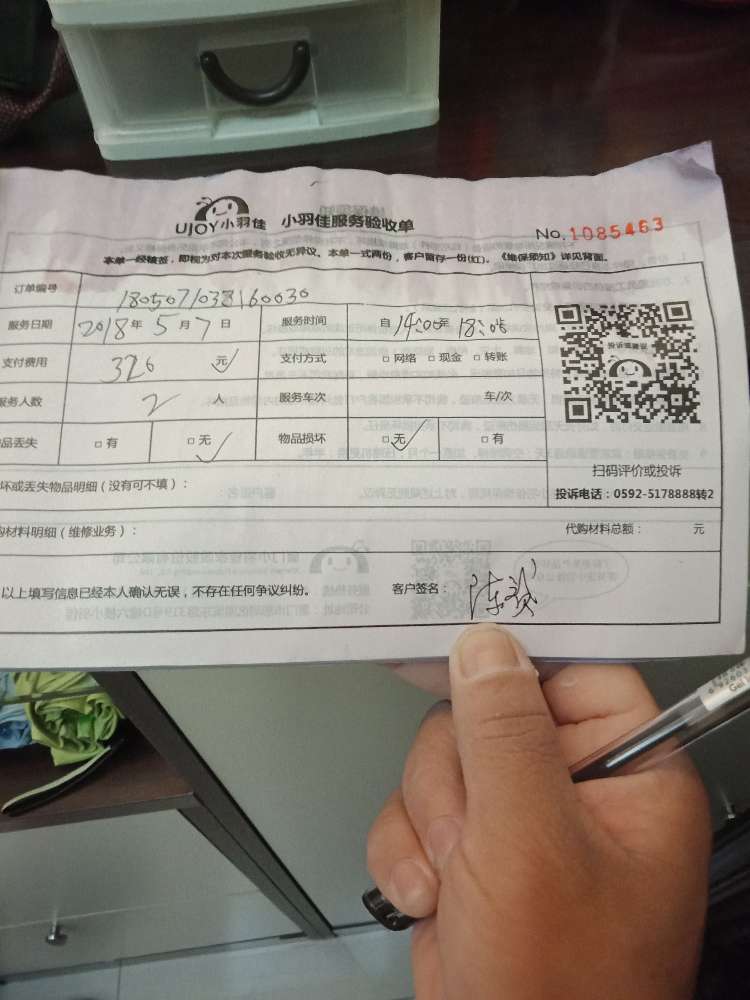 UJOY小羽佳 小羽佳服务验收单
No.1085463
本单一经核签，即视为对本次服务验收无异议。本单一式两份，客户留存一份(红)。《维保须知》详见背面。
订单编号 1805071038160030
服务日期 2018年5月7日 服务时间 自14:00至18:00止
支付费用 326元 支付方式 □网络 □现金 □转账
投诉或建议
服务人数 2人 服务车次 车/次
品丢失 □有 □无 物品损坏 □无 □有
扫码评价或投诉
坏或丢失物品明细（没有可不填）：
投诉电话：0592-5178888转2
购材料明细（维修业务）：
代购材料总额： 元
以上填写信息已经本人确认无误，不存在任何争议纠纷。 客户签名：